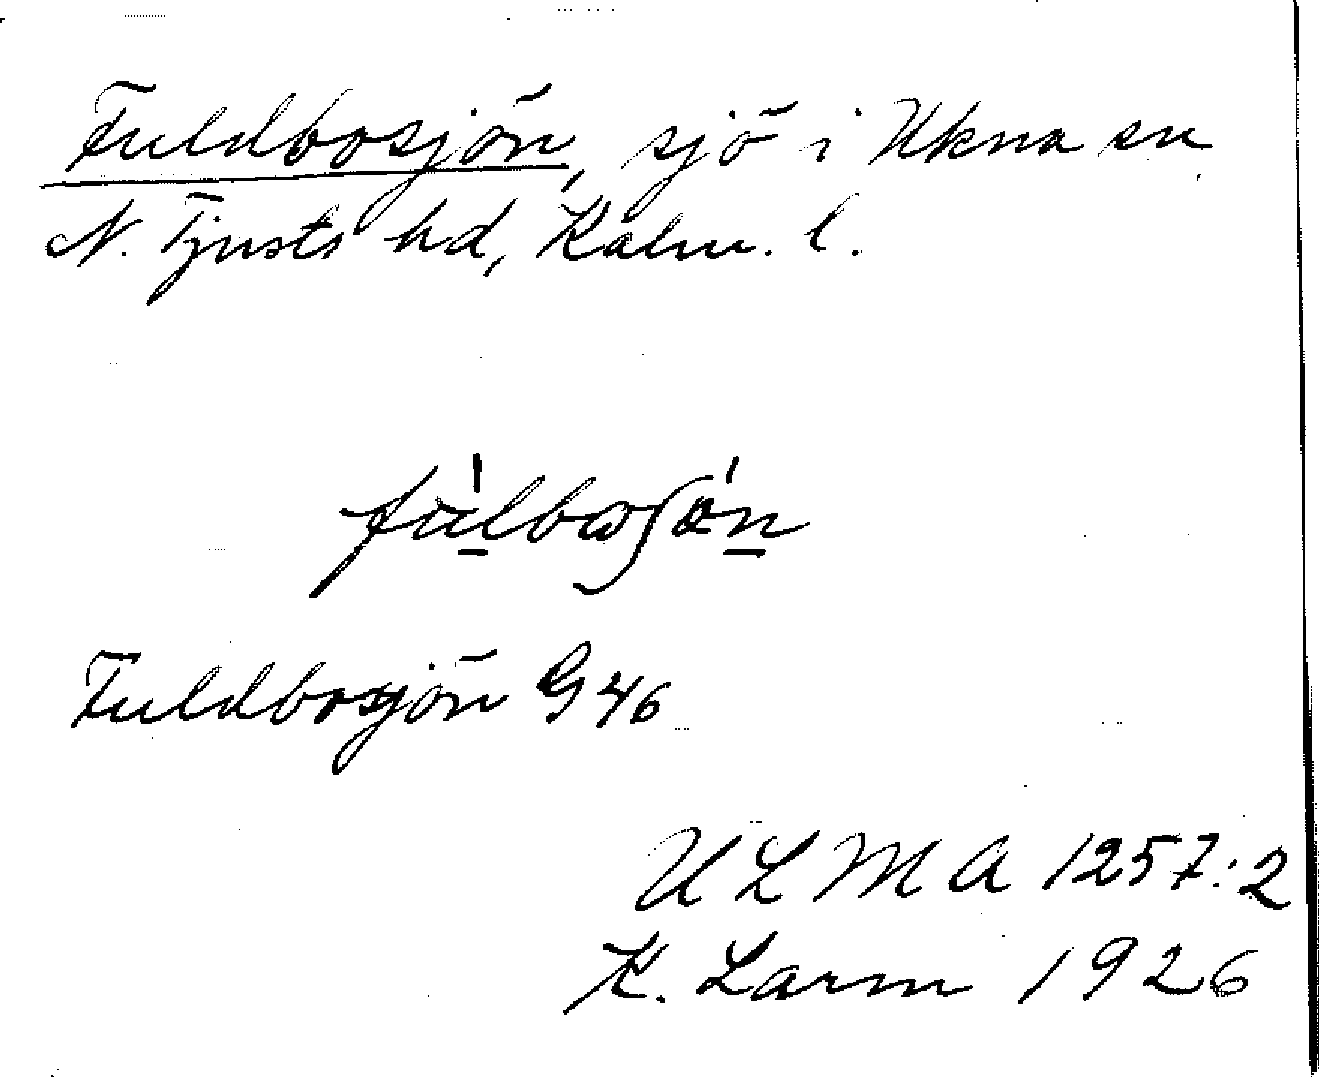 Fuldbosjön, sjö i Ukna sn
N. Tjusts hd, Kalm. l.
Fuldbosjön G 46
ULMA 1257:2
K. Larm 1926